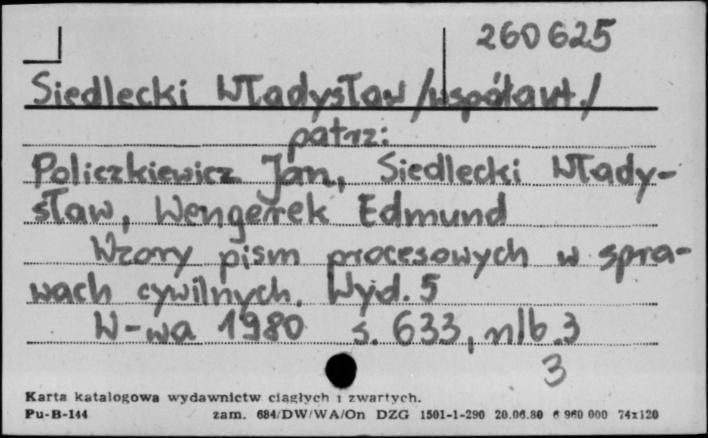 260625
Siedlecki Władysław /współaut./
patrz:
Policzkiewicz Jan, Siedlecki Włady-
sław, Wengerek Edmund
Wzory pism procesowych w spra-
wach cywilnych. Wyd. 5
W-wa 1980 s. 633, nlb. 3
3
Karta katalogowa wydawnictw ciągłych i zwartych.
Pu-B-144 zam. 684/DW/WA/On DZG 1501-1-290 20.06.80 6 960 000 74x120